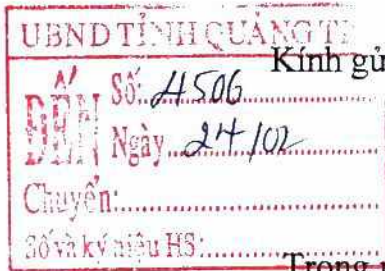 UBND TỈNH QUẢNG
Kính gử
ĐẾN
Số: 4506
Ngày 24/02
Chuyển:
Số và ký hiệu HS:
Trong